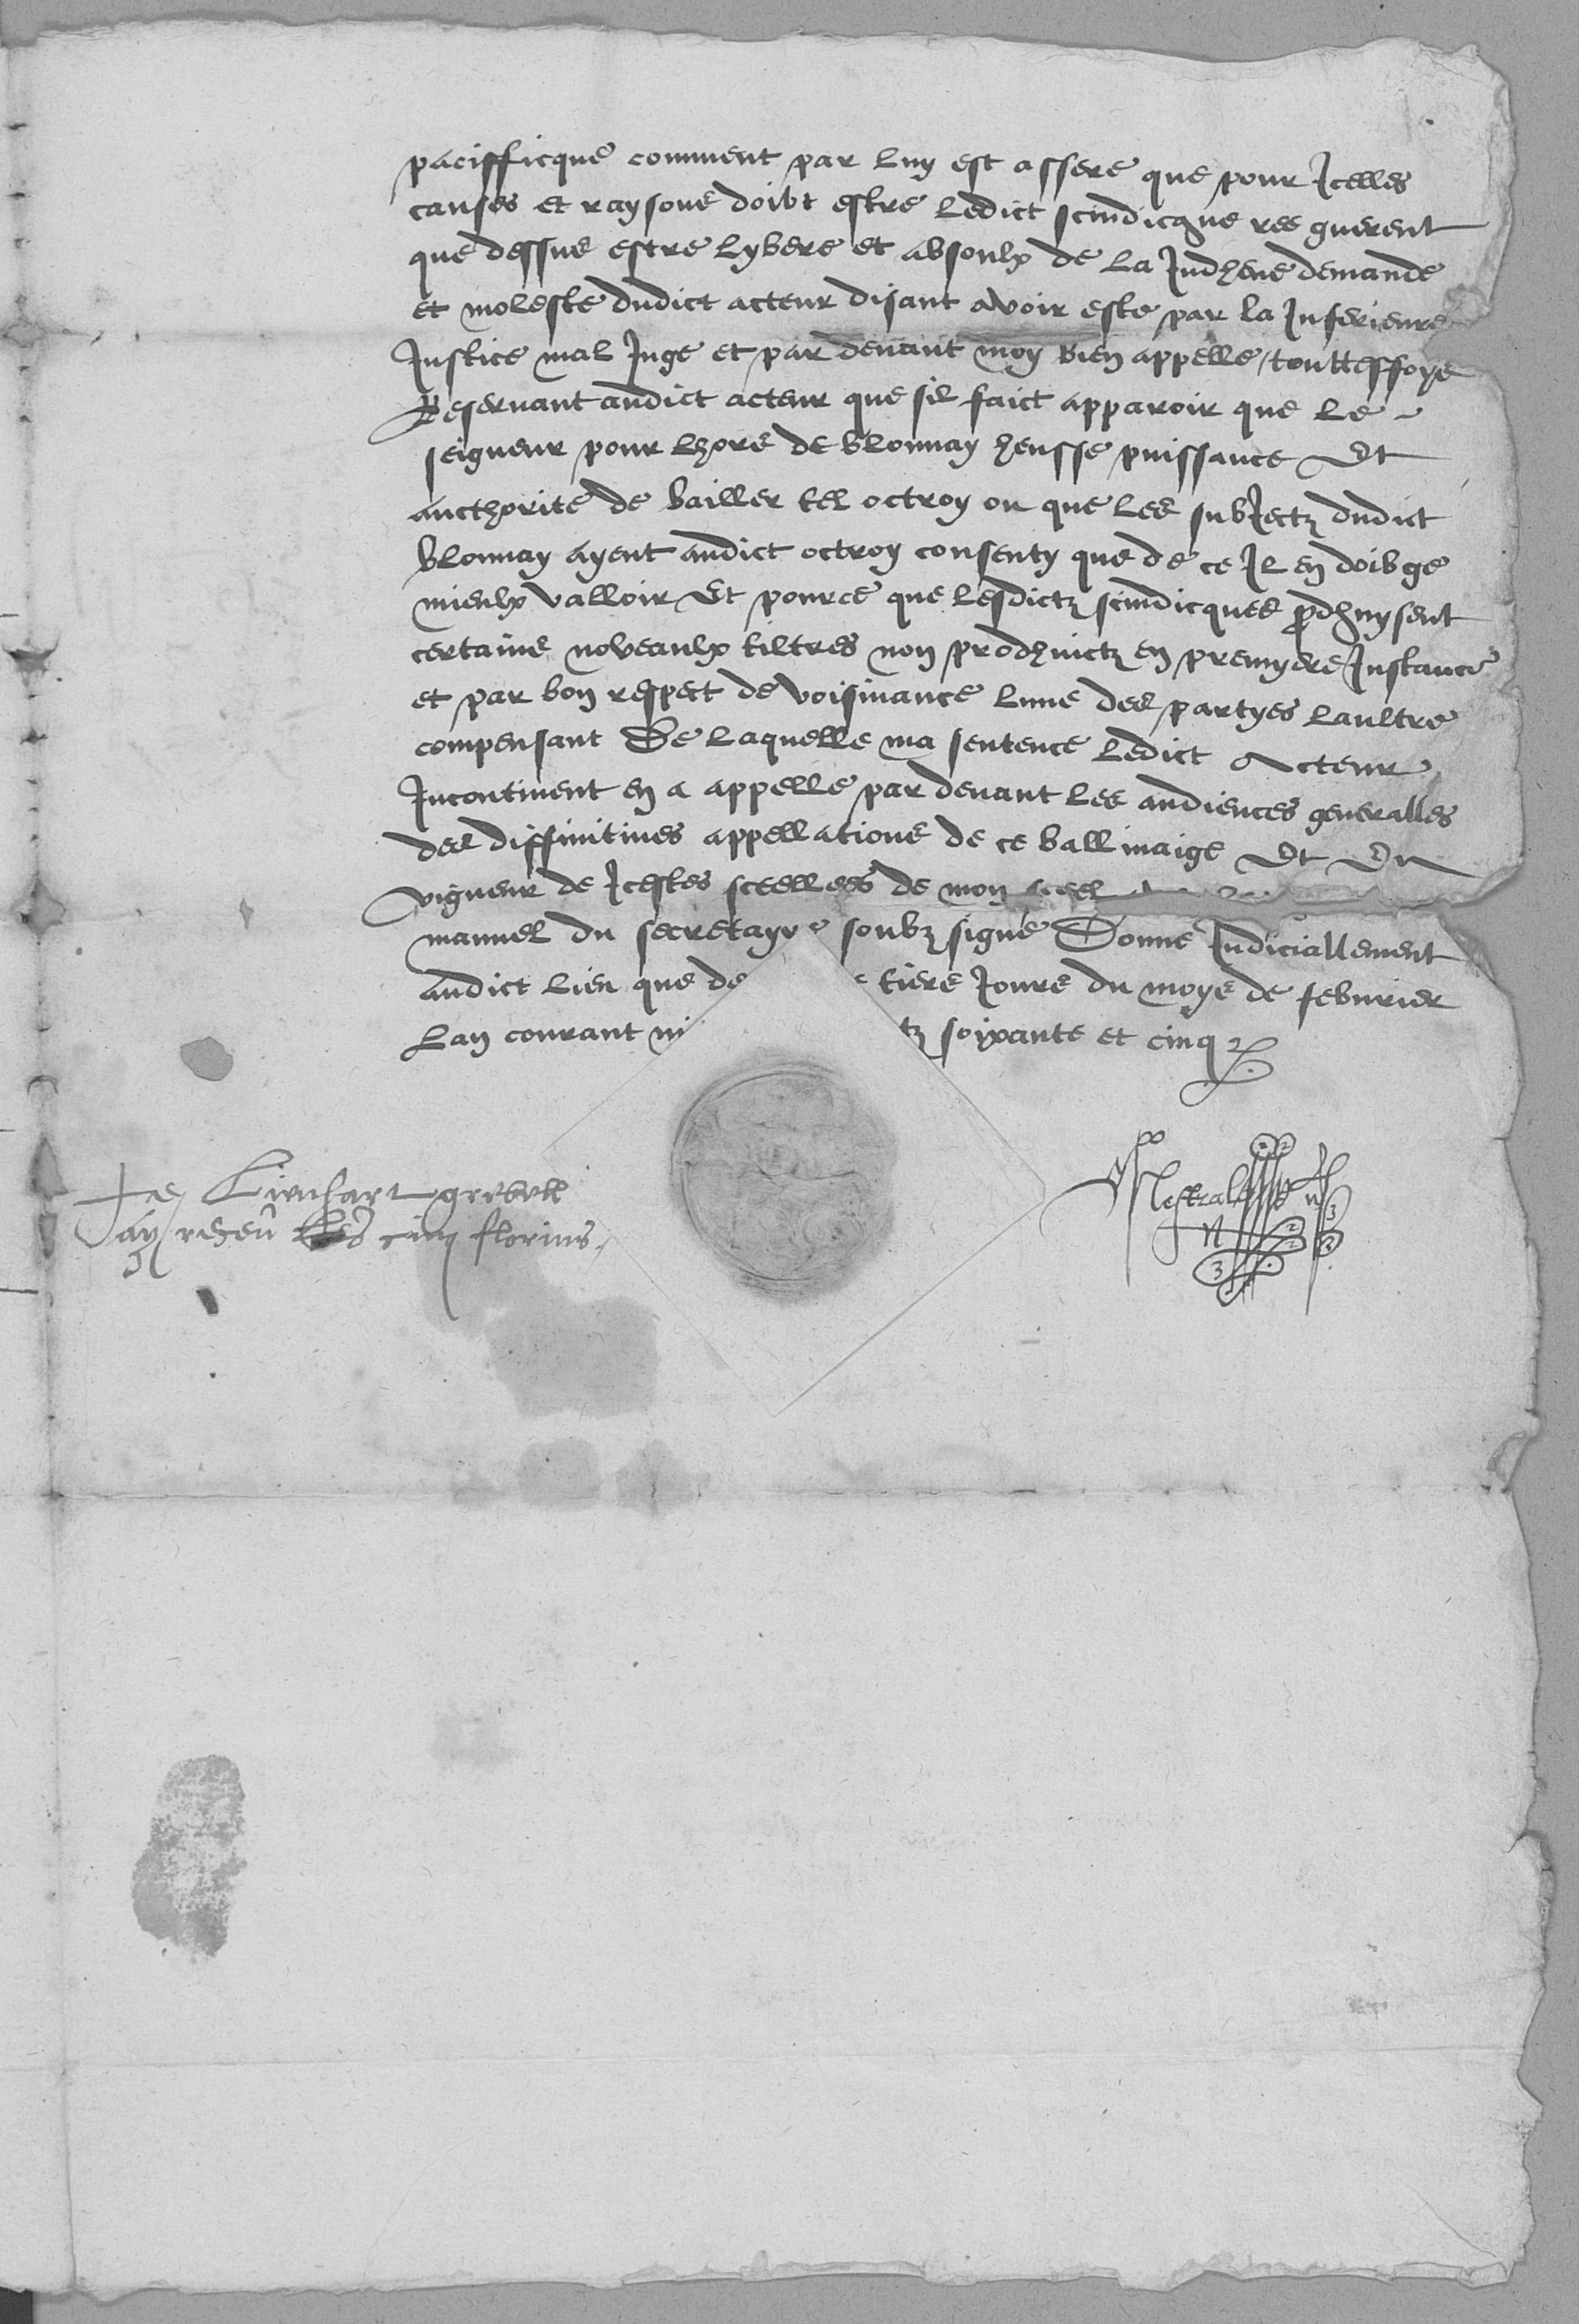 pacifficque comment par luy est assere que pour Icelles
causes et raysons doibt estre ledict scindicque res guerent
que dessus estre lybere et absoulx de la Indhene demande
et moleste dudict acteur disant avoir este par la Inferieure
Justice mal Juge et par devant moy bien appelle / touttesfoys
Reservant audict acteur que sil faict apparoir que le
seigneur pour lhore de blonnay heusse puissance Et
aucthorite de bailler tel octroy ou que les subJectz dudict
blonnay ayent audict octroy consenty que de ce Il en doibge
mieulx valloir Et pource que lesdictz scindicques prodhuysent
certains noveaulx tiltres non prodhuictz en premyere Instance
et par bon respect de voisinance lune des partyes laultre
compensant De laquelle ma sentence ledict Acteur
Incontinent en a appelle par devant les audiences generalles
des diffinitives appellations de ce balliviaige Et En
vigueur de Icestes sceellees de mon sceel
manuel du secretayre soubz signe Donne Judiciallement
audict lieu que de tiers Jours du moys de febvrier
Lan courant mi tz soixante et cinq
Je Lienhart
ay receu les cinq florins.